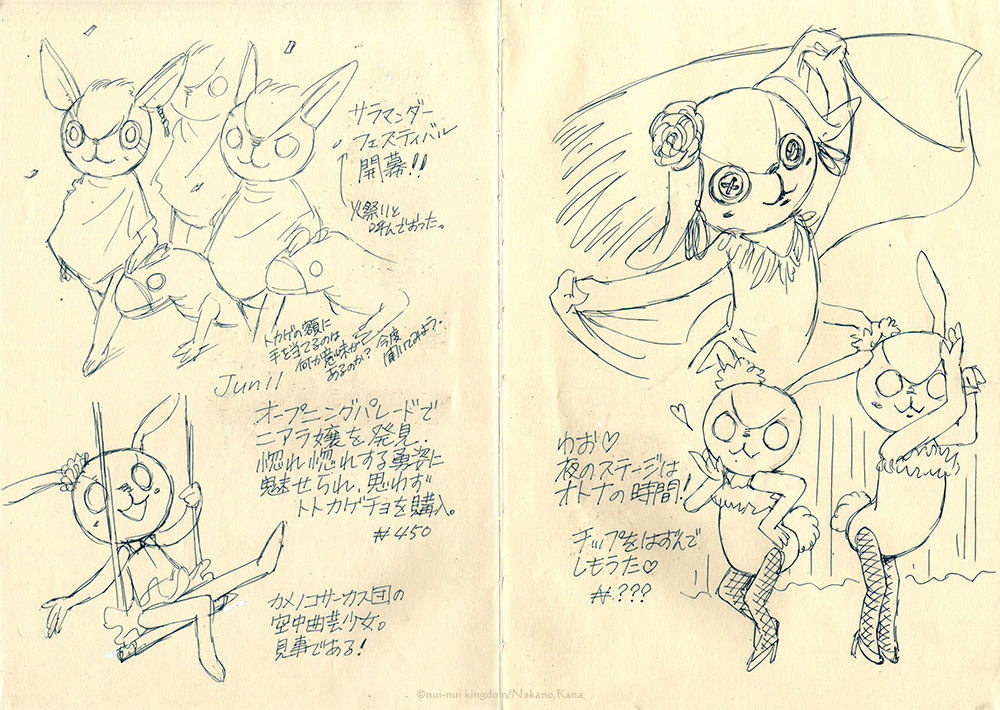 サラマンダー
フェスティバル
開幕!!
火祭りと
呼んでおった。
トカゲの額に
手を当てるのは
何か意味が
あるのか?
今度
聞いてみよう…
Junil
オープニングパレードで
ニアラ嬢を発見.
惚れ惚れする勇姿に
魅せられ、思わず
トトカゲチョを購入。
#450
カメノコサーカス団の
空中曲芸少女。
見事である!
わお♡
夜のステージは
オトナの時間!
チップをはずんで
しもうた♡
#???
©nui-nui kingdom/Nakano,Kana.